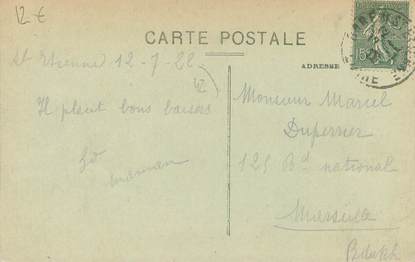 12 €
CARTE POSTALE
ADRESSE
St Etienne 12-7-22
42
Il pleut bons baisers
maman
Monsieur Marcel
Duperrier
125 Bd national
Marseille